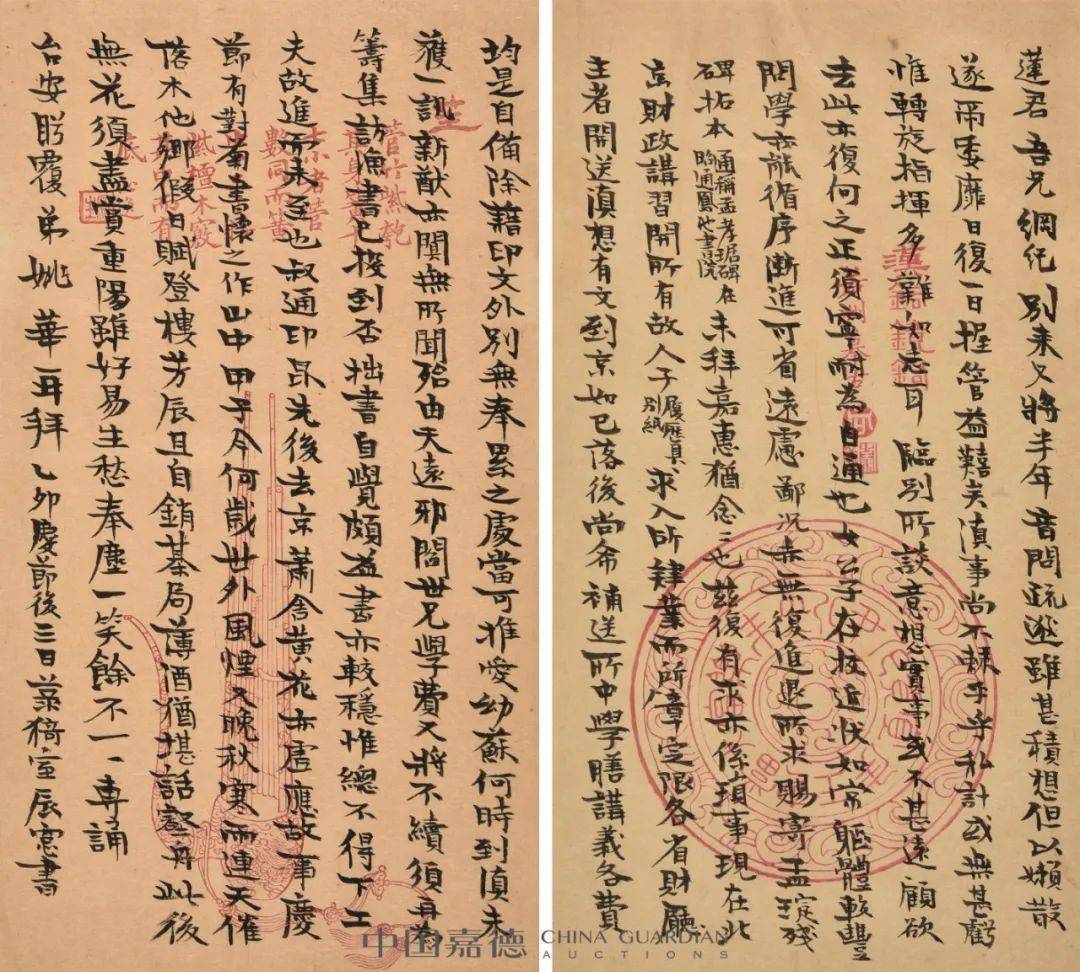 蓮君吾兄綱紀別來又將半年音問疏逖雖甚積想但以嬾散
遂爾委靡日復一日握管益難矣滇事尚不棘手乎私計或無甚虧
惟轉旋指揮多難如志耳臨別所談意想實事或不甚遠顧欲
去此亦復何之正須寧耐為自通也女公子在校近狀如常軀體較豐
問學亦能循序漸進可省遠慮鄙況亦無復進退所求賜寄孟琁殘
碑拓本通稱孟孝琚碑在昭通鳳池書院未拜嘉惠猶念念也茲復有求亦係瑣事現在此
京財政講習開所有故人子履歷具別紙求入所肄業而所章定限各省財廳
主者開送滇想有文到京如已落後尚希補送所中學膳講義各費
均是自備除藉印文外別無奉累之處當可推愛幼蘇何時到滇未
獲一訊新猷亦闃無所聞殆由天遠邪閣世兄學費又將不續須再為
籌集訪漁書已投到否拙書自覺頗益畫亦較穩惟總不得下工
夫故進而未至也叔通印昆先後去京蕭舍黃花亦虛應故事慶
節有對菊書懷之作山中甲子今何歲世外風煙又晚秋寒雨連天催
落木他鄉假日賦登樓芳辰且自銷棊局薄酒猶堪話舟此後
無花須盡賞重陽雖好易生愁奉塵一笑餘不一一專誦
台安眝覆弟姚華再拜乙卯慶節後三日菉猗室晨窓書
中国嘉德 CHINA GUARDIAN
AUCTIONS